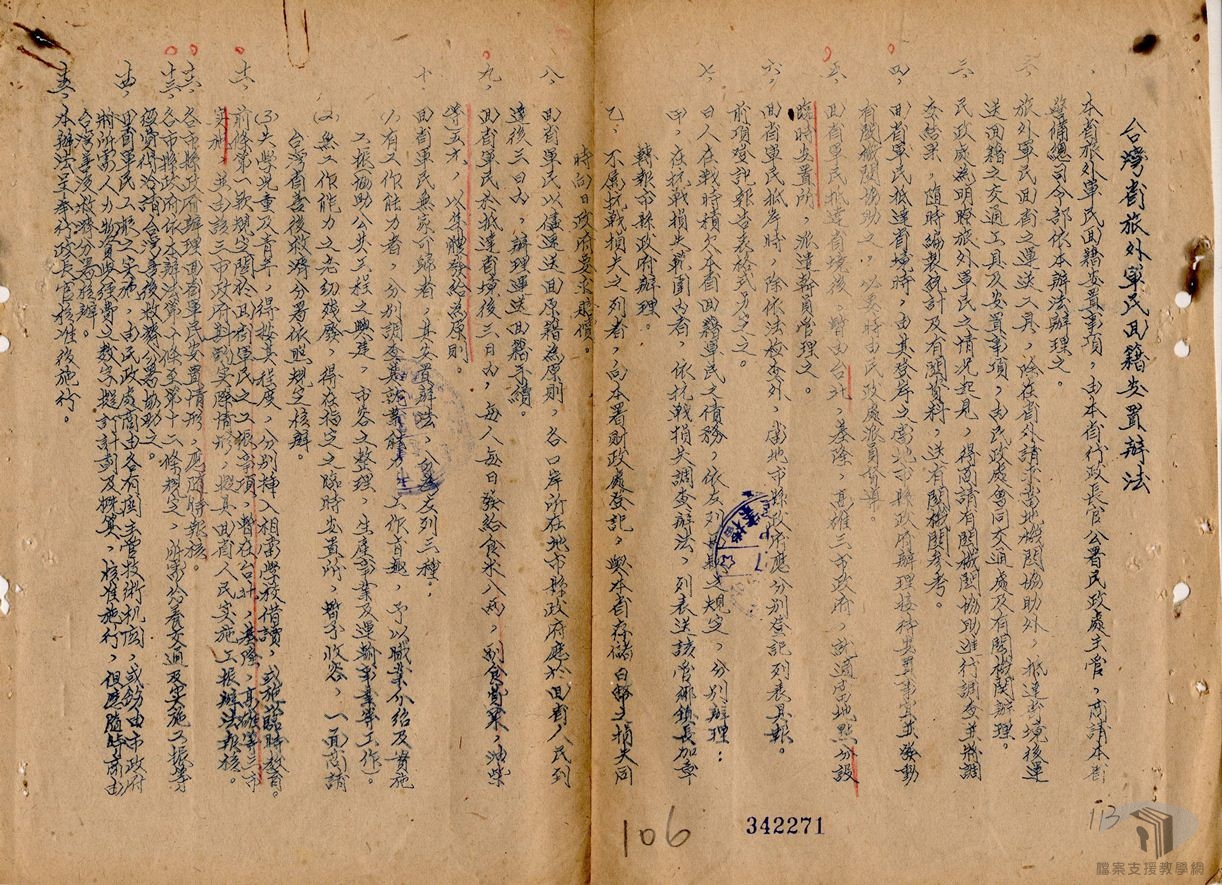 台灣省旅外軍民回籍安置辦法
一、本省旅外軍民回籍安置事項，由本省行政長官公署民政處主管，商請本省
警備總司令部依本辦法辦理之。
二、旅外軍民回省之運送工具，除在省外請求當地機關協助外，抵達台境後運
送回籍之交通工具及安置事項，由民政處會同交通處及有關機關辦理。
三、民政處為明瞭旅外軍民之情況起見，得商請有關機關協助進行調查並將調
查結果，隨時編製統計及有關資料，送有關機關參考。
四、回省軍民抵達省境時，由其登岸之當地市縣政府辦理接待安置事宜並發動
有關機關協助之，必要時由民政處派員督導。
五、回省軍民抵達省境後，暫由台北，基隆，高雄三市政府，就適當地點分設
臨時安置所，派遣幹員管理之。
六、回省軍民抵岸時，除依法檢查外，當地市縣政府應分別登記列表具報。
前項登記報告表格式另定之。
七、日人在戰時積欠本省回籍軍民之債務，依左列規定，分別辦理：
甲、在抗戰損失範圍內者，依抗戰損失調查辦法，列表送該管鄉鎮長加章
轉報市縣政府辦理。
乙、不屬抗戰損失之列者，向本署財政處登記，與本省存儲日幣之損失同
時向日政府要求賠償。
八、回省軍民以儘速送回原籍為原則，各口岸所在地市縣政府應於回省人民到
達後三日內，辦理運送回籍手續。
九、回省軍民於抵達省境後三日內，每人每日發給食米八兩，副食費，油柴
等五元，以集體發給為原則。
十、回省軍民無家可歸者，其安置辦法，分為左列三種：
(1)有工作能力者，分別調查其就業能力，工作旨趣，予以職業介紹及實施
工振（協助公共工程之興建，市容之整理，生產事業及運輸事業等工作）。
(2)無工作能力之老幼殘廢，得在指定之臨時安置所，暫予收容，一面商請
台灣省善後救濟分署依照規定核辦。
(3)失學兒童及青年，得按其程度，分別插入相當學校借讀，或施以臨時教育。
十一、前條第一款規定關於回省軍民之工振事項，暫在台北，基隆，高雄等三市
實施，並由該三市政府斟酌實際情形，擬具回省人民實施工振辦法報核。
十二、各市縣政府辦理回省軍民安置情形，應隨時報核。
十三、各市縣政府依本辦法第八條至第十二條規定，所需給養交通及實施工振等
經費得洽請台灣善後救濟分署協助之。
十四、回省軍民工振之實施，由民政處商由各有關主管技術机關，或飭由市政府
將所需人力物資與經費之數字擬訂計劃及概算，核准施行，但應隨時商由
台灣善後救濟分署核辦。
十五、本辦法呈奉行政長官核准後施行。
106
342271
113
檔案支援教學網